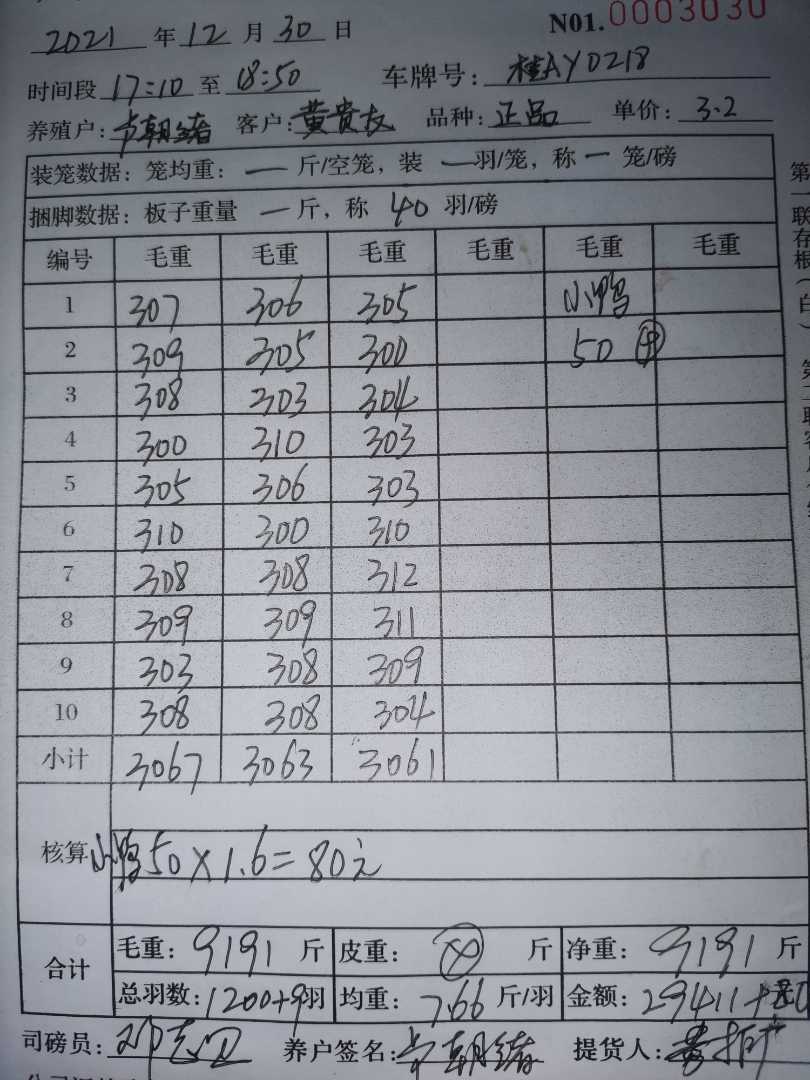 N01.0003030
2021 年 12 月 30 日
时间段 17:10 至 18:50 车牌号: 桂AY0218
养殖户: 朝绪 客户: 黄贵友 品种: 正品 单价: 3.2
装笼数据: 笼均重: — 斤/空笼, 装 — 羽/笼, 称 — 笼/磅
捆脚数据: 板子重量 — 斤, 称 40 羽/磅
编号 毛重 毛重 毛重 毛重 毛重 毛重
1 307 306 305 小鸭
2 309 305 300 50
3 308 303 304
4 300 310 303
5 305 306 303
6 310 300 310
7 308 308 312
8 309 309 311
9 303 308 309
10 308 308 304
小计 3067 3063 3061
核算 小鸭50×1.6=80元
合计 毛重: 9191 斤 皮重: 斤 净重: 9191 斤
总羽数: 1200+9羽 均重: 7.66 斤/羽 金额: 29411+
司磅员: 养户签名: 朝绪 提货人: 黄
第一联存根(白)